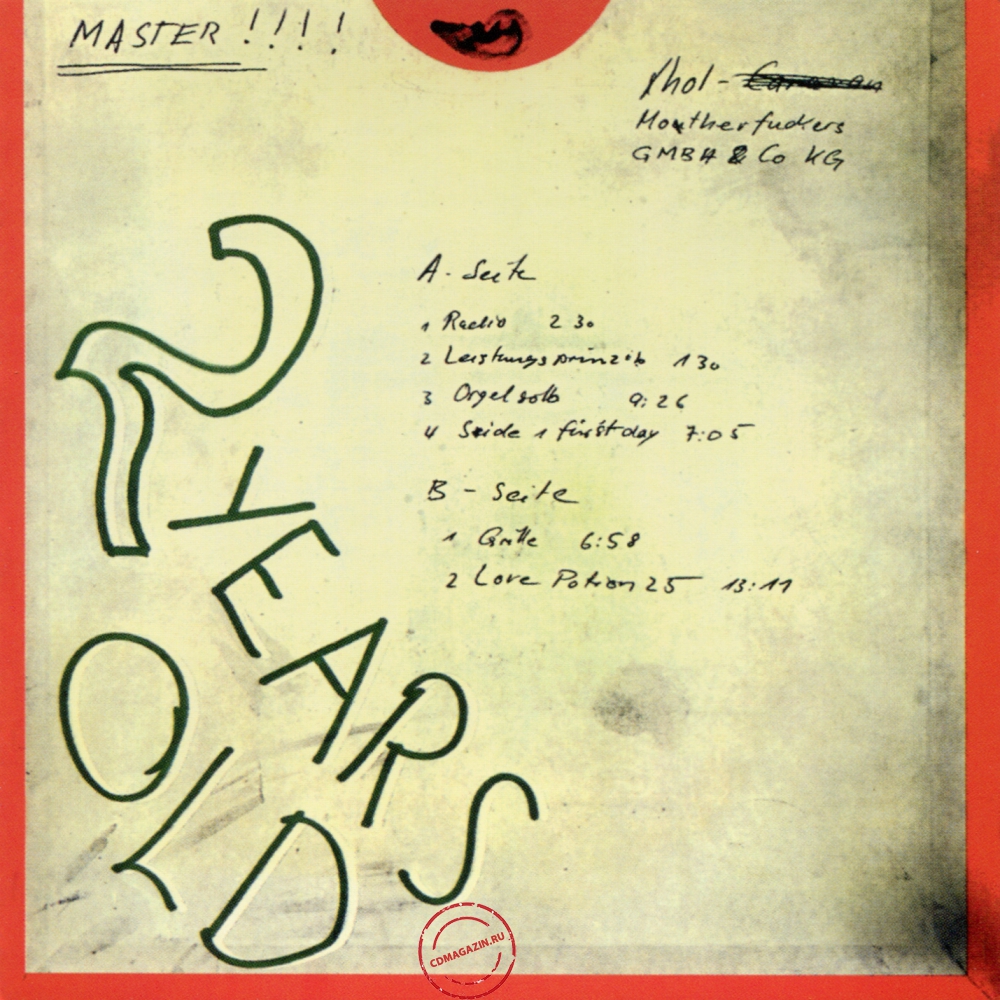 MASTER !!!!
Xhol - Caravan
Moutherfuckers
GMBH & Co KG
A - Seite
1 Radio 2 30
2 Leistungsprinzib 1 30
3 Orgelsolo 9:26
4 Side 1 first day 7:05
B - Seite
1 Grille 6:58
2 Love Potion 25 13:11
2
YEARS
OLD
CDMAGAZIN.RU